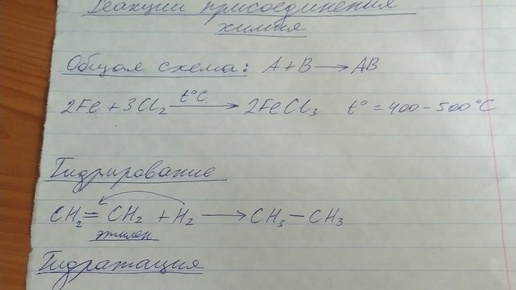 Реакции присоединения
химия
Общая схема: A+B→AB
2Fe+3Cl₂ t°C→ 2FeCl₃ t°=400-500°C
Гидрирование
CH₂=CH₂+H₂→CH₃-CH₃
этилен
Гидратация